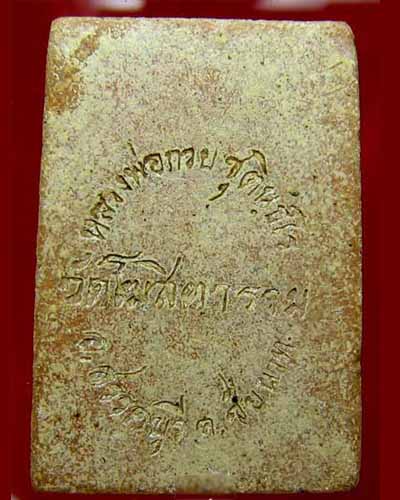 หลวงพ่อกวย ชุตินฺธโร
วัดโฆสิตาราม
อ.สรรคบุรี จ.ชัยนาท